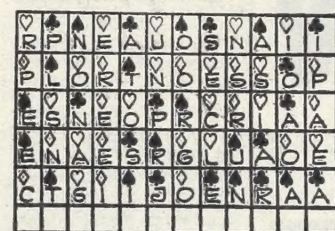 R P N E A U O S N A I I
P L O R T N O E S S O P
E S N E O P R C R I A A
E N A E S R G L U A O E
C T S I I J O E N R A A